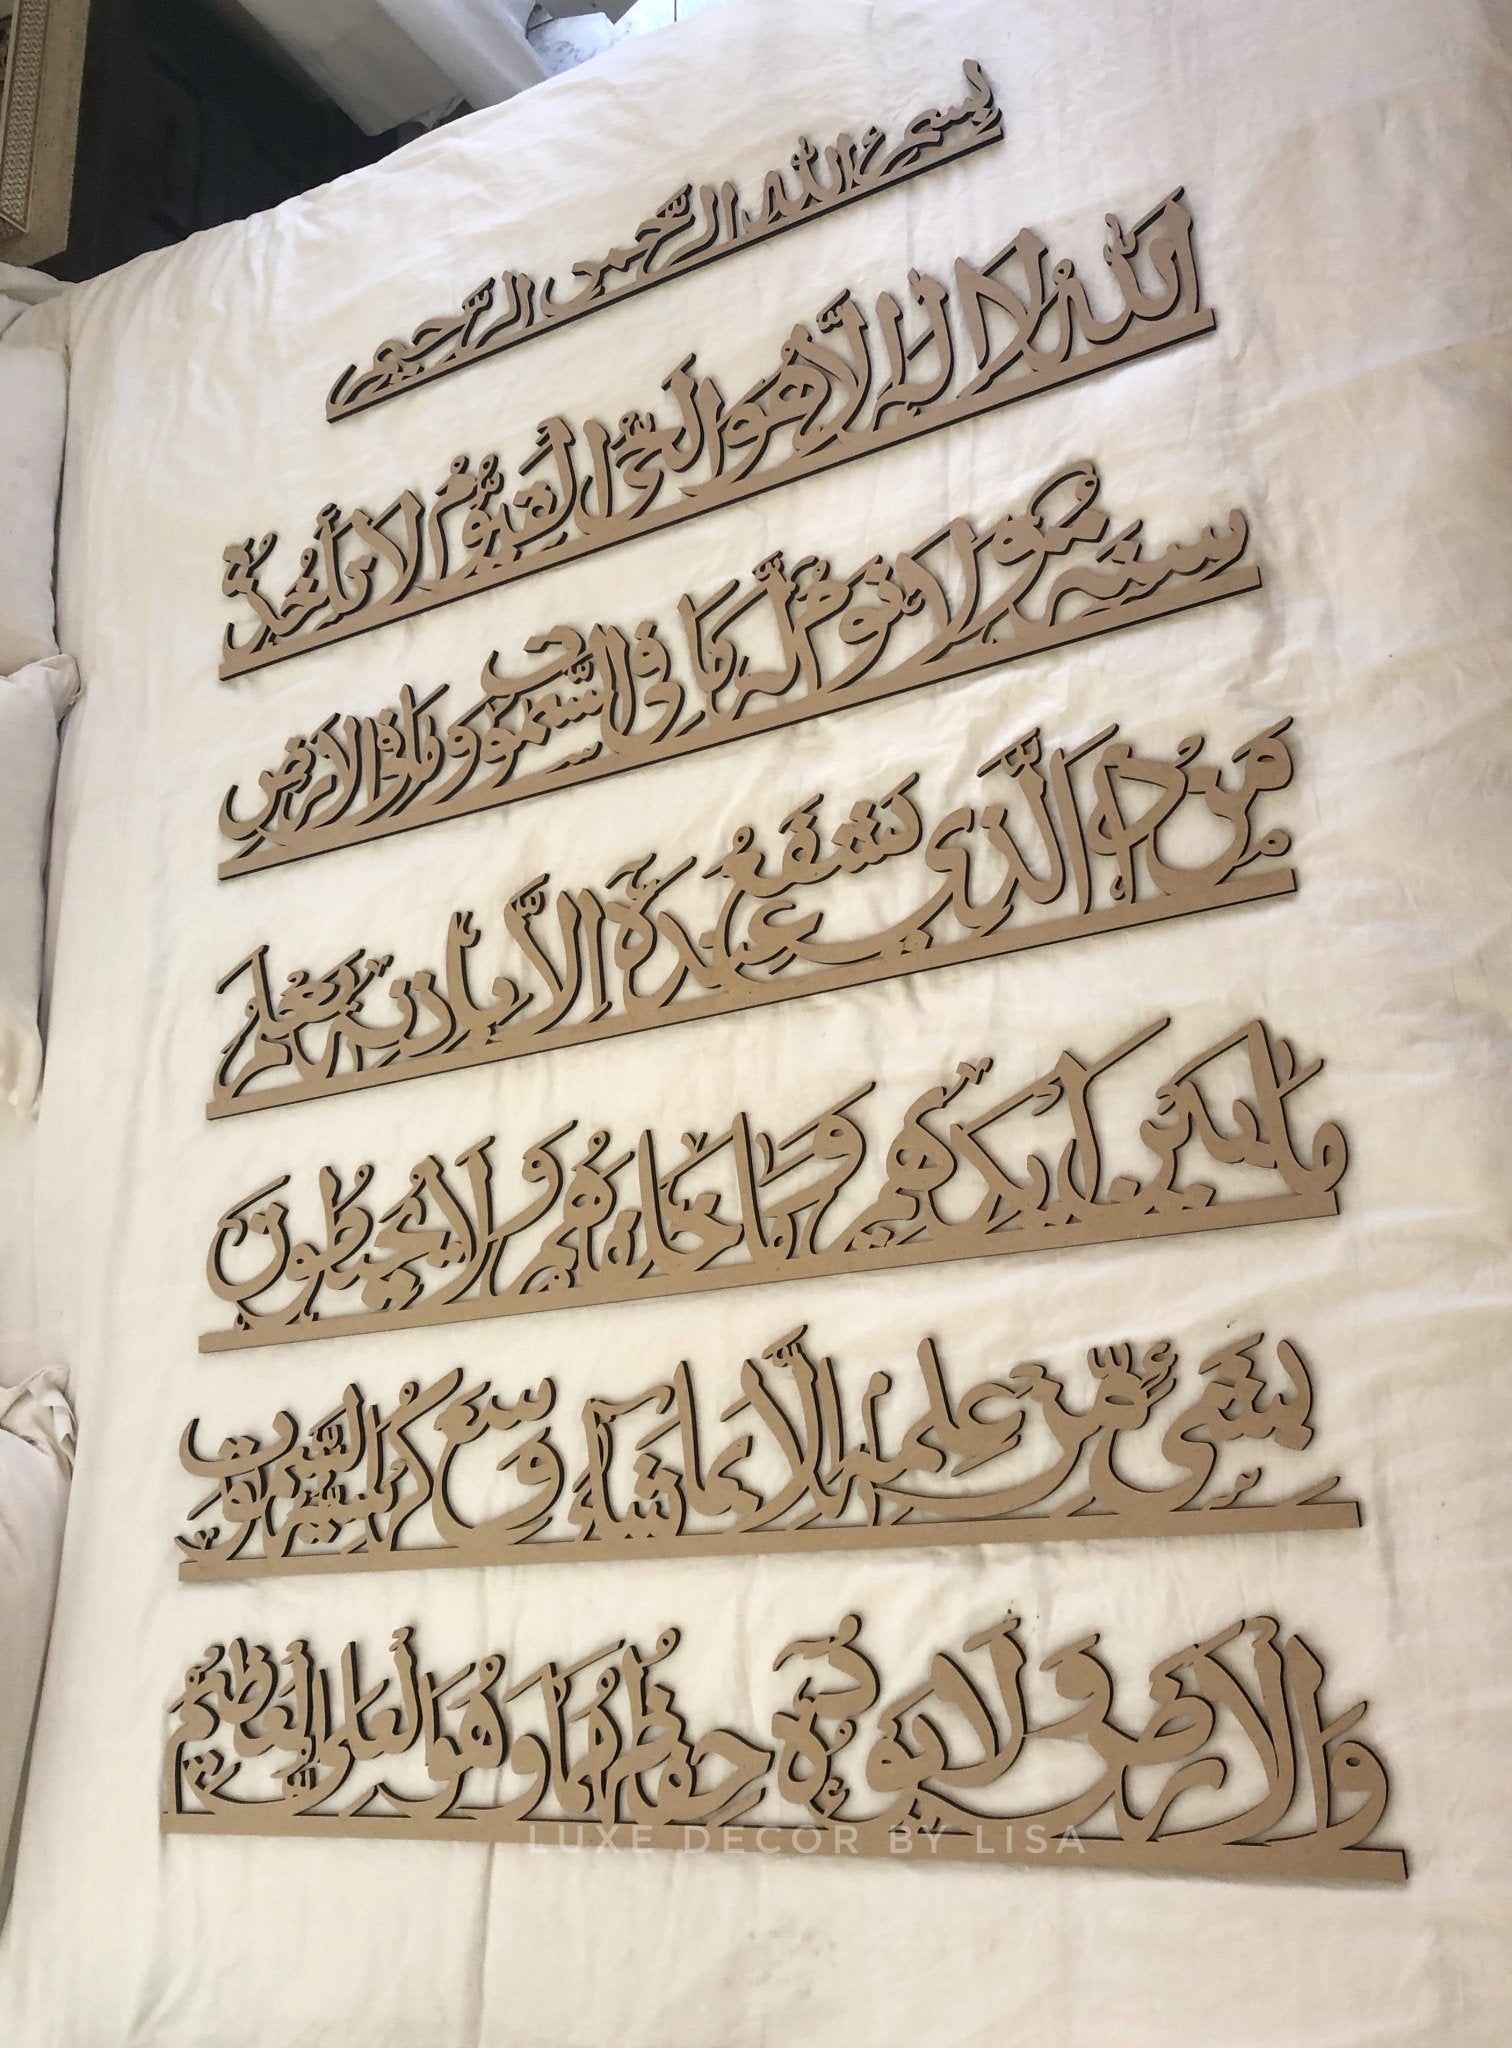 بسم الله الرحمن الرحيم
الله لا إله إلا هو الحي القيوم لا تأخذه
سنة ولا نوم له ما في السموات وما في الأرض
من ذا الذي يشفع عنده إلا بإذنه يعلم
ما بين أيديهم وما خلفهم ولا يحيطون
بشيء من علمه إلا بما شاء وسع كرسيه السموات
والأرض ولا يؤده حفظهما وهو العلي العظيم
LUXE DECOR BY LISA